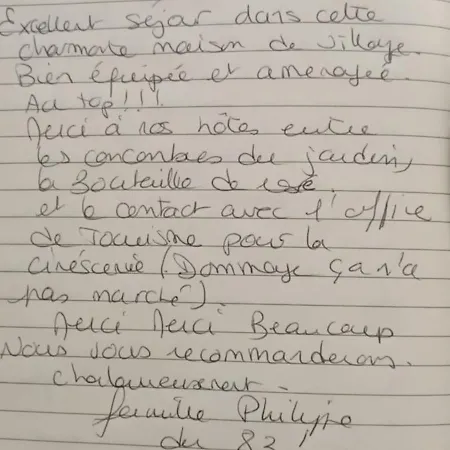 Excellent séjar dans cette
charmante maison de village.
Bien équipée et aménagée.
Au top!!!
Merci à nos hôtes entre
les concombres du jardin,
la Bouteille de rosé.
et le contact avec l'office
de Tourisme pour la
cinéscenie (Dommage ça n'a
pas marché).
Merci Merci Beaucoup
Nous vous recommanderons.
Chaleureusement -
famille Philippe
du 83!